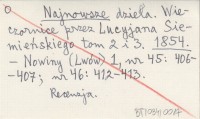 Najnowsze dzieła. Wie-
czornice przez Lucyjana Sie-
mieńskiego tom 2 i 3. 1854.
- Nowiny (Lwów) 1, nr 45: 406-
-407; nr 46: 412-413.
Recenzja.